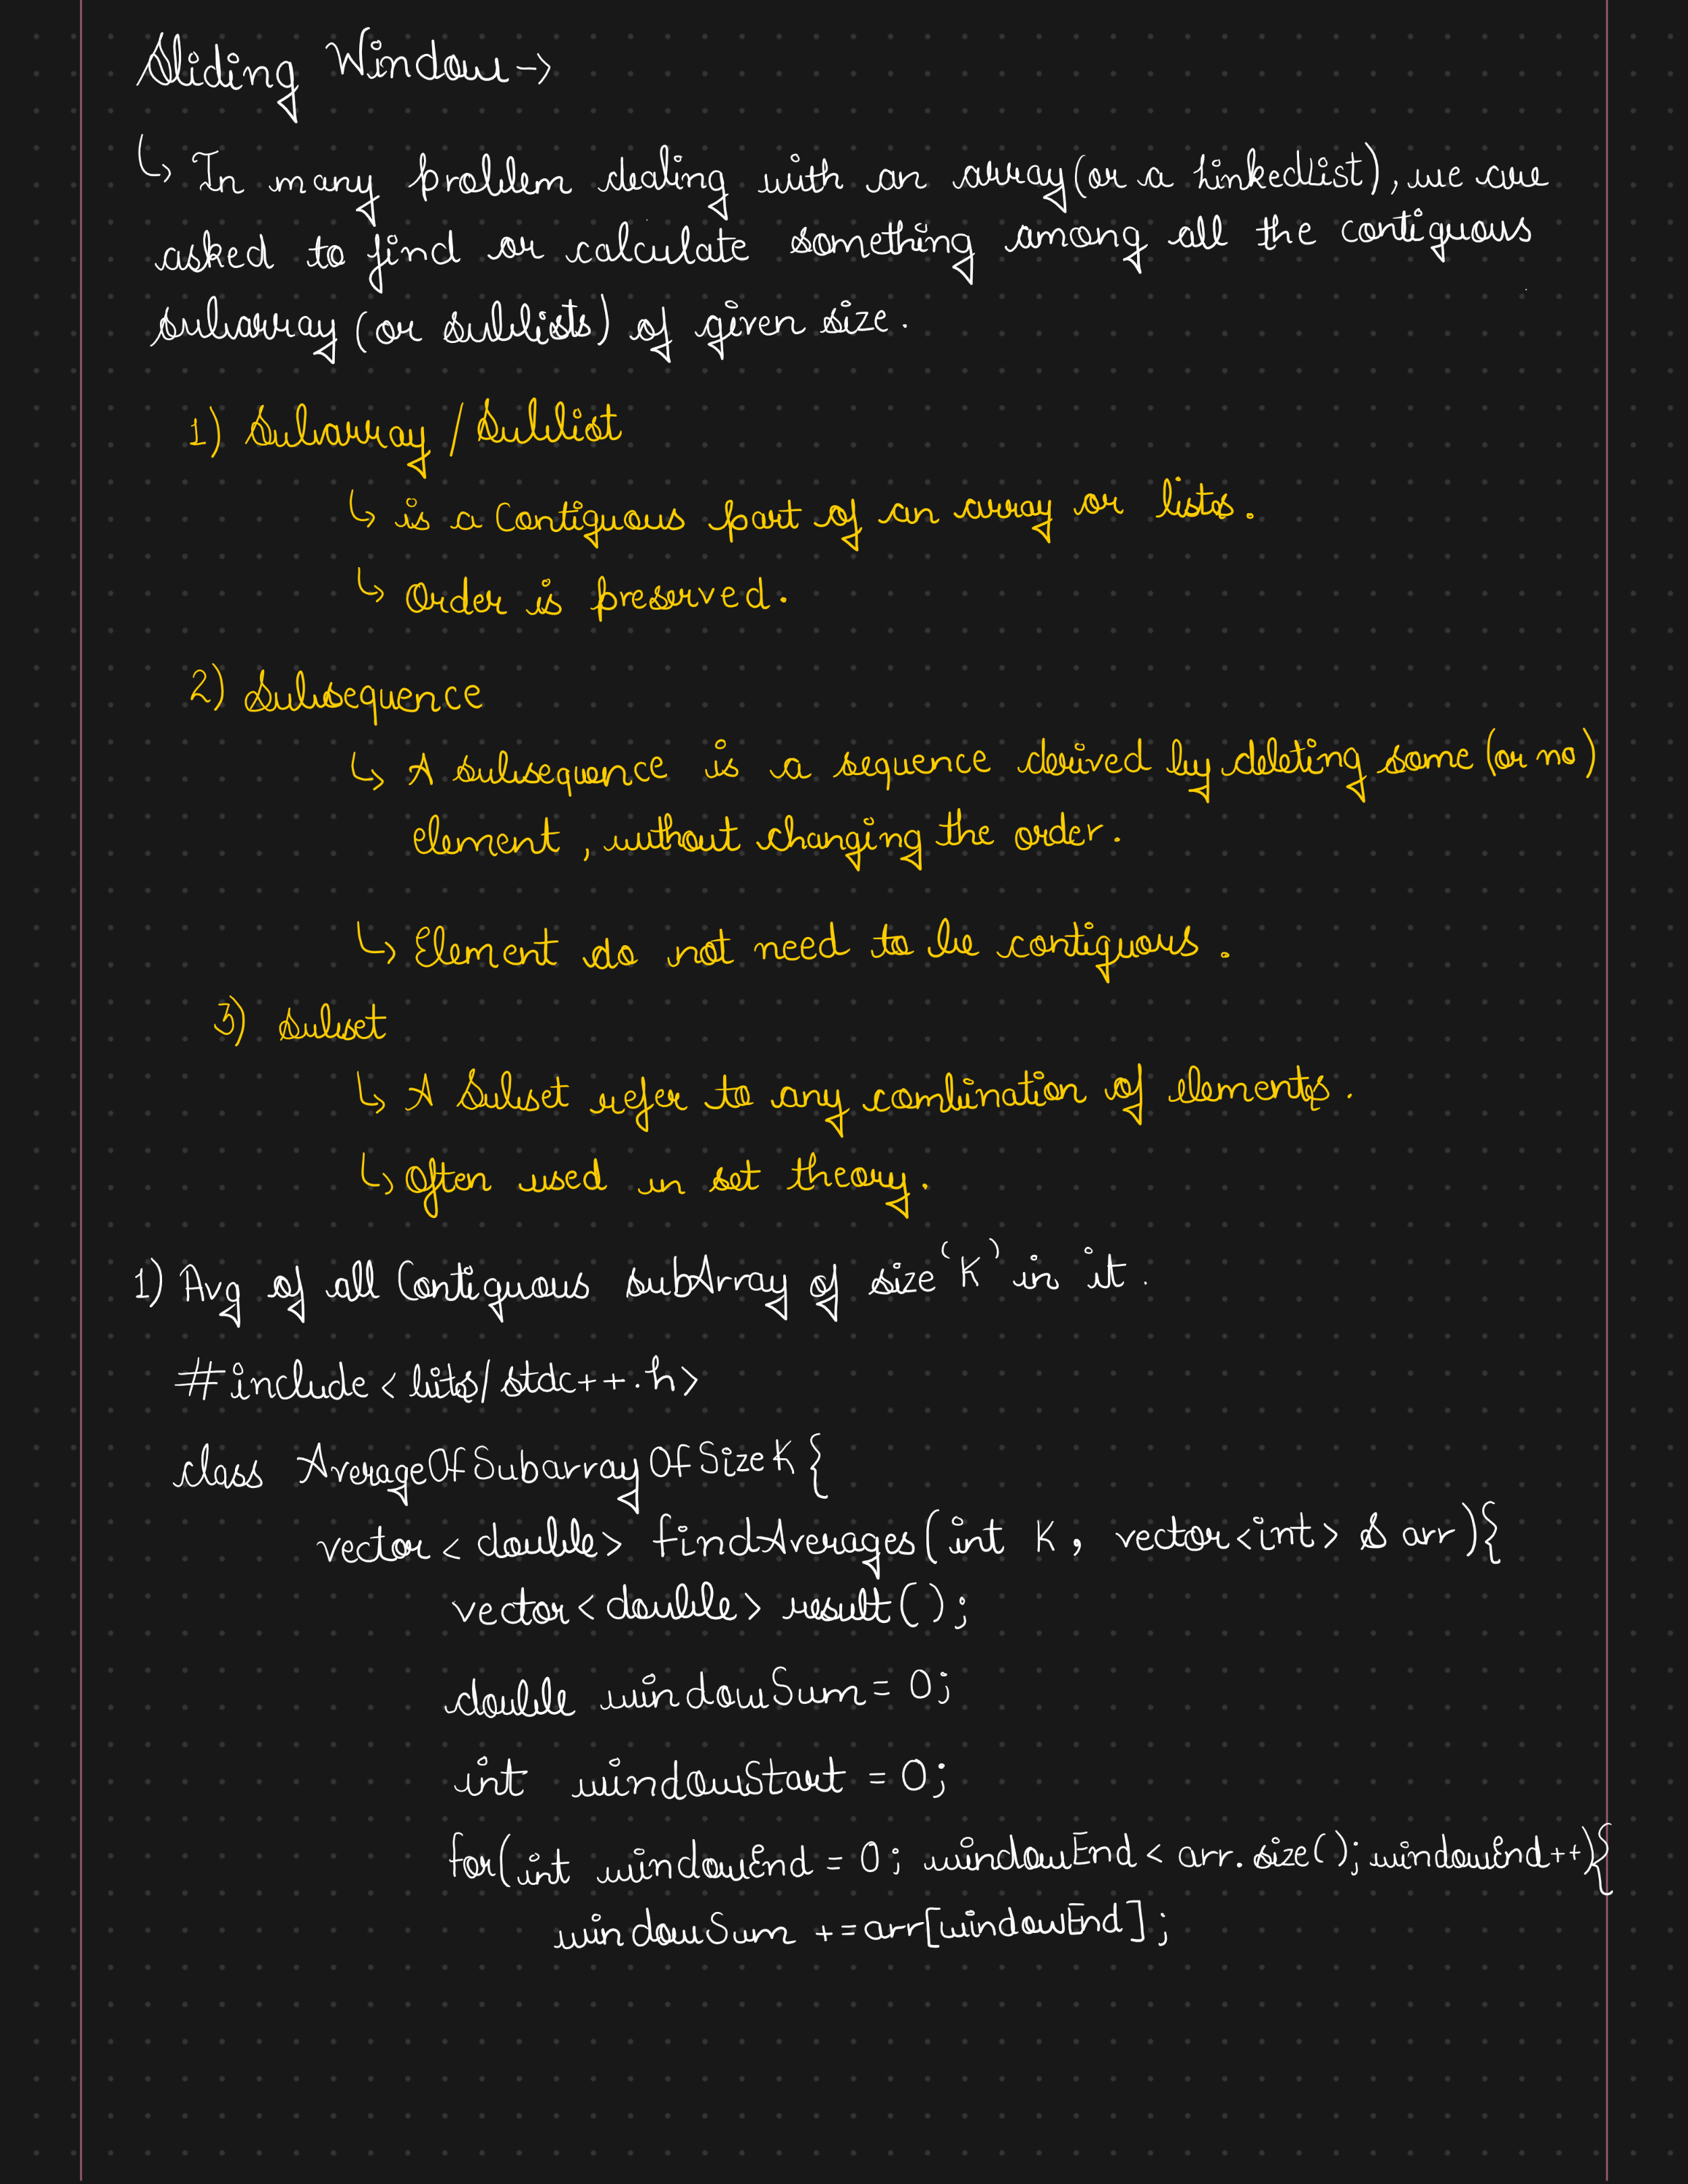 Sliding Window →
↳ In many problem dealing with an array (or a LinkedList), we are
asked to find or calculate something among all the contiguous
subarray (or sublists) of given size.
1) Subarray / Sublist
↳ is a Contiguous part of an array or lists.
↳ Order is preserved.
2) Subsequence
↳ A subsequence is a sequence derived by deleting some (or no)
element, without changing the order.
↳ Element do not need to be contiguous.
3) Subset
↳ A Subset refer to any combination of elements.
↳ Often used in set theory.
1) Avg of all Contiguous subArray of size 'K' in it.
#include <bits/stdc++.h>
class AverageOfSubarrayOfSizeK {
vector<double> findAverages(int K, vector<int> & arr){
vector<double> result();
double windowSum = 0;
int windowStart = 0;
for(int windowEnd = 0; windowEnd < arr.size(); windowEnd++){
windowSum += arr[windowEnd];